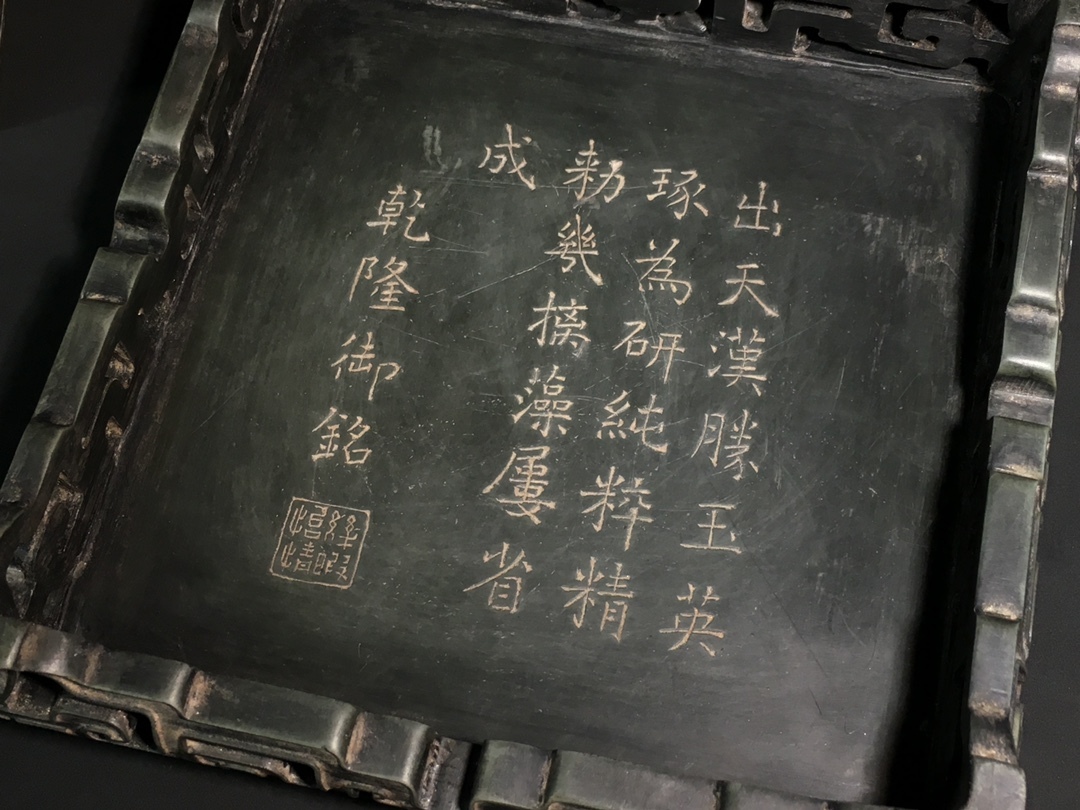 出天漢勝玉英
琢為研純粹精
勑幾摛藻屢省
成
乾隆御銘
幾暇怡情